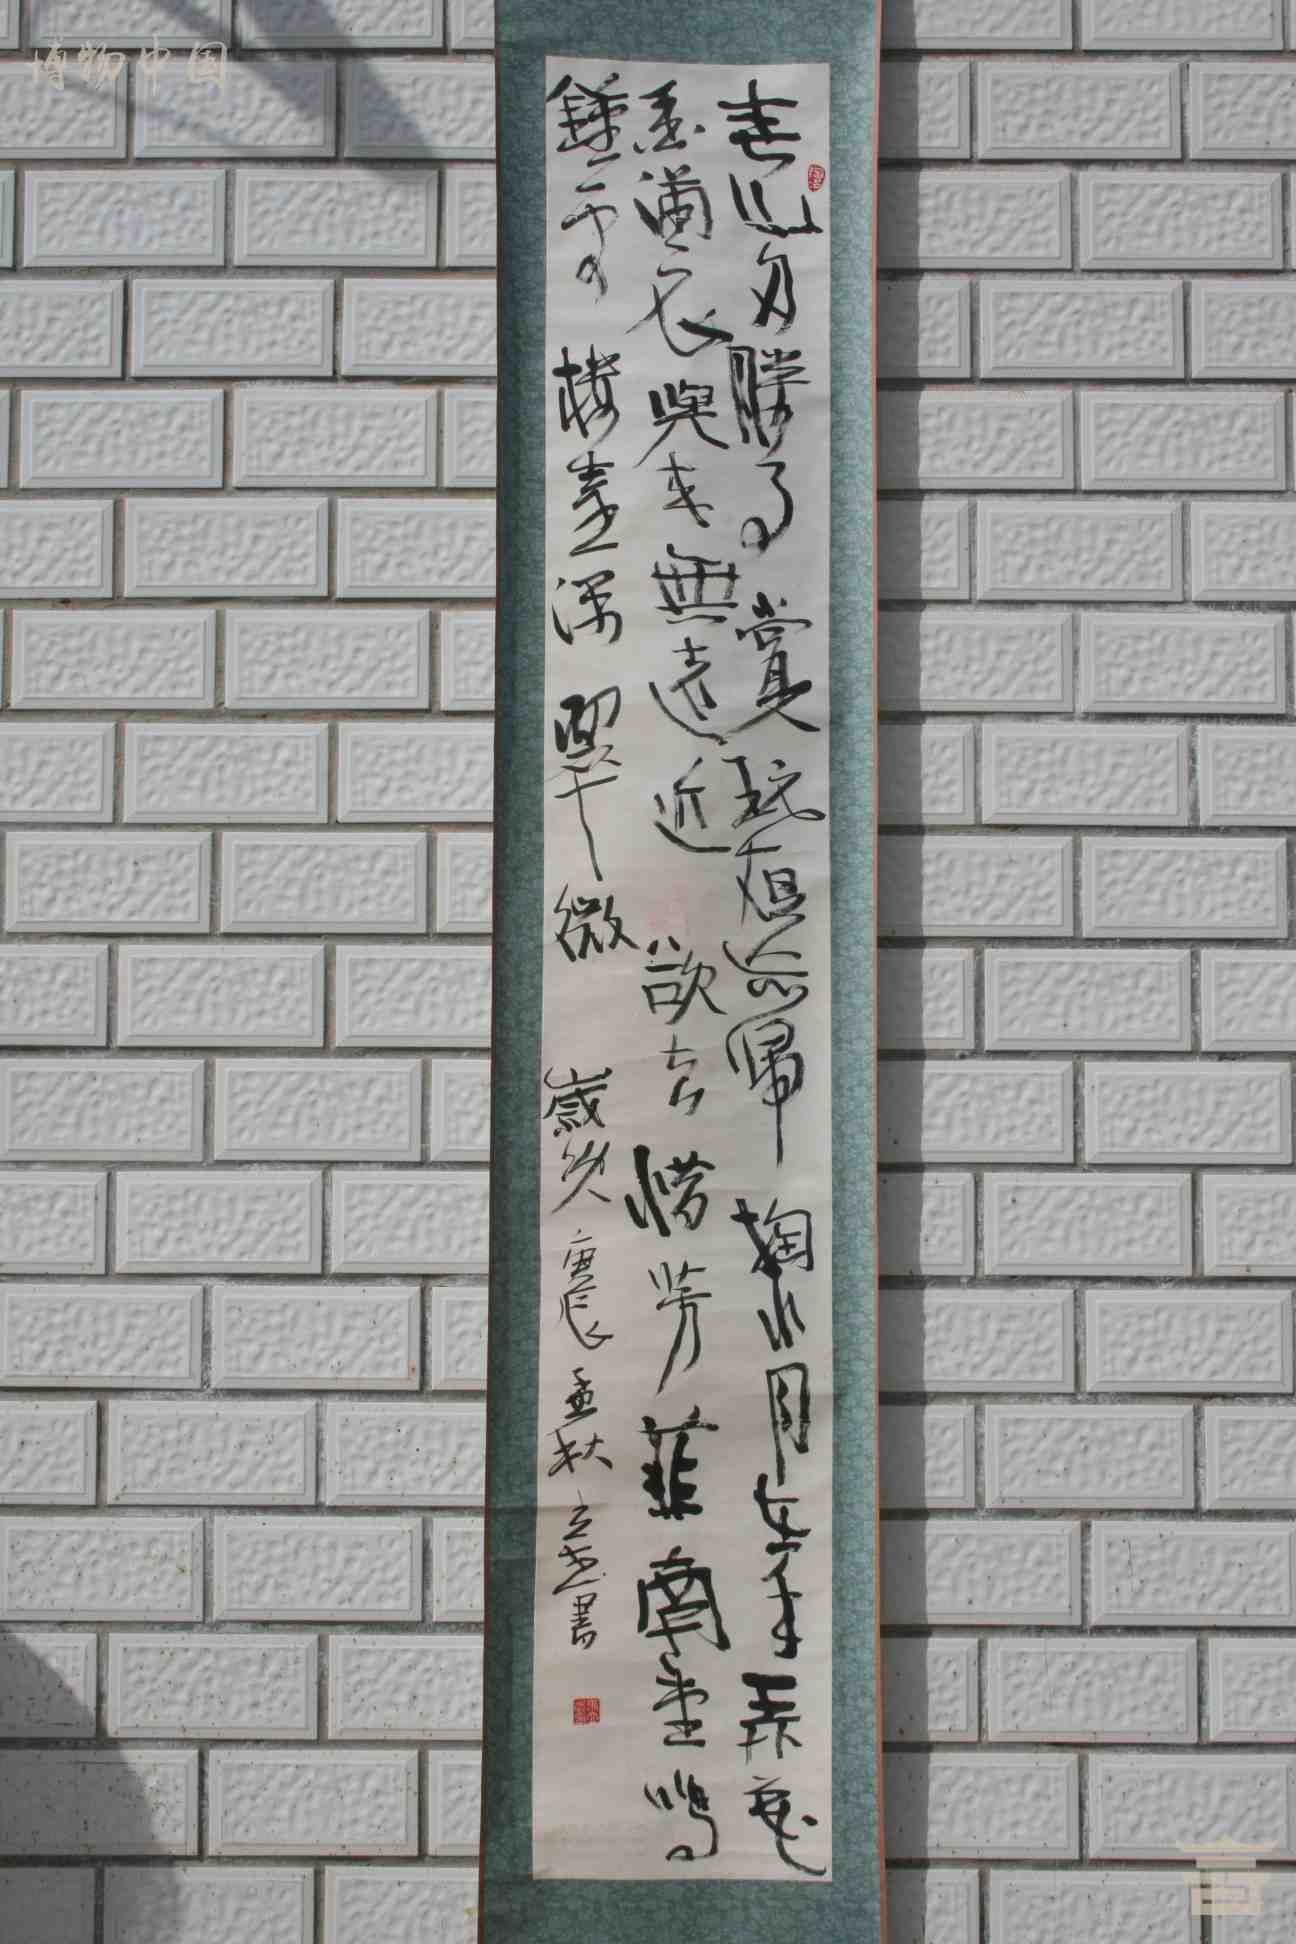 博物中国
春山多勝事賞玩夜忘歸掬水月在手弄花
香滿衣興來無遠近欲去惜芳菲南望鳴
鐘處樓臺深翠微 歲次庚辰孟秋書